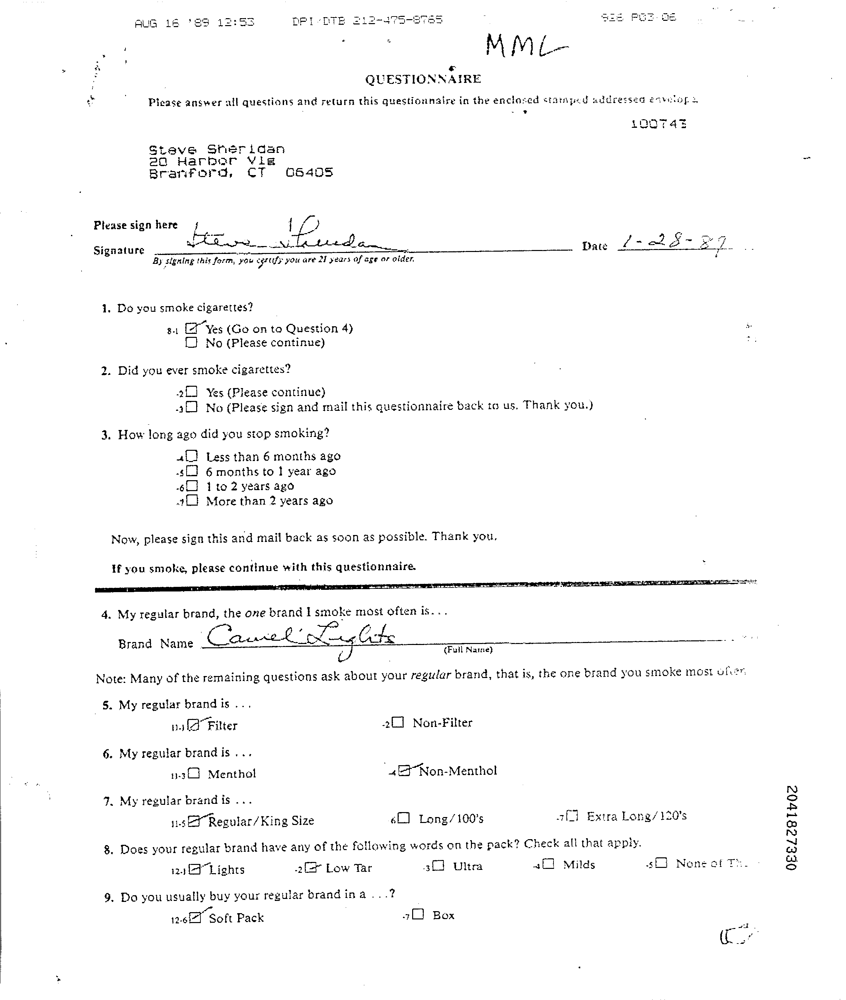 AUG 16 '89 12:53 DPI/DTB 212-475-8765 926 P03/06
MML
QUESTIONNAIRE
Please answer all questions and return this questionnaire in the enclosed stamped addressed envelope.
100743
Steve Sheridan
20 Harbor Vlg
Branford, CT 06405
Please sign here
Signature Steve Sheridan Date 1-28-89
By signing this form, you certify you are 21 years of age or older.
1. Do you smoke cigarettes?
8-1 ☑ Yes (Go on to Question 4)
☐ No (Please continue)
2. Did you ever smoke cigarettes?
-2 ☐ Yes (Please continue)
-3 ☐ No (Please sign and mail this questionnaire back to us. Thank you.)
3. How long ago did you stop smoking?
-4 ☐ Less than 6 months ago
-5 ☐ 6 months to 1 year ago
-6 ☐ 1 to 2 years ago
-7 ☐ More than 2 years ago
Now, please sign this and mail back as soon as possible. Thank you.
If you smoke, please continue with this questionnaire.
4. My regular brand, the one brand I smoke most often is...
Brand Name Camel Lights
(Full Name)
Note: Many of the remaining questions ask about your regular brand, that is, the one brand you smoke most often.
5. My regular brand is ...
11-1 ☑ Filter -2 ☐ Non-Filter
6. My regular brand is ...
11-3 ☐ Menthol -4 ☑ Non-Menthol
7. My regular brand is ...
11-5 ☑ Regular/King Size -6 ☐ Long/100's -7 ☐ Extra Long/120's
8. Does your regular brand have any of the following words on the pack? Check all that apply.
12-1 ☑ Lights -2 ☑ Low Tar -3 ☐ Ultra -4 ☐ Milds -5 ☐ None of
9. Do you usually buy your regular brand in a ...?
12-6 ☑ Soft Pack -7 ☐ Box
2041827330